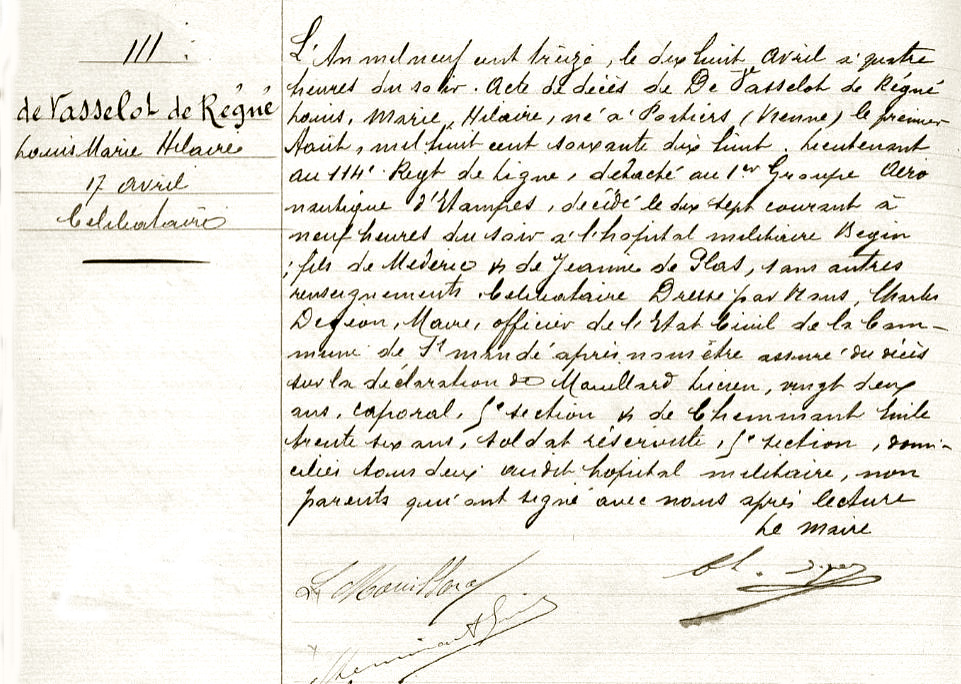 111
de Vasselot de Régné
Louis Marie Hilaire
17 avril
Célibataire
L'An mil neuf cent treize, le dix huit avril à quatre
heures du soir. Acte de décès de De Vasselot de Régné
Louis, Marie, Hilaire, né à Poitiers (Vienne) le premier
Août, mil huit cent soixante dix huit. Lieutenant
au 114e Regt de Ligne, détaché au 1er Groupe Aéro
nautique d'Etampes, décédé le dix sept courant à
neuf heures du soir à l'hopital militaire Begin
; fils de Mederic & de Jeanne de Plas, sans autres
renseignements. Célibataire Dressé par Nous, Charles
Digeon, Maire, officier de l'Etat Civil de la Com-
mune de St mandé après nous être assuré du décès
sur la déclaration de Mouillard Lucien, vingt deux
ans, caporal, 5e section & de Chemmant Emile
trente six ans, soldat réserviste, 5e section, domi-
ciliés tous deux audit hopital militaire, non
parents qui ont signé avec nous après lecture
Le maire
L Mouillard